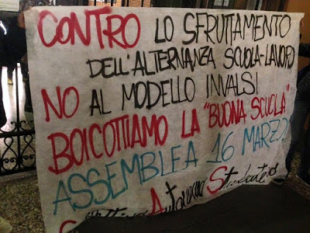 CONTRO LO SFRUTTAMENTO
DELL'ALTERNANZA SCUOLA-LAVORO
NO AL MODELLO INVALSI
BOICOTTIAMO LA "BUONA SCUOLA"
ASSEMBLEA 16 MARZO